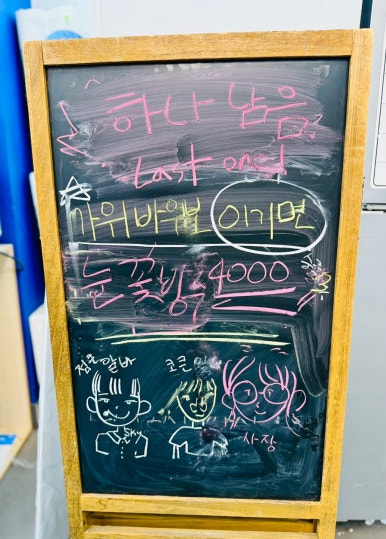 하나 남음
Last one!
가위바위보 이기면
눈꽃빙수 4000
점론 알바
코큰
사장
Sky